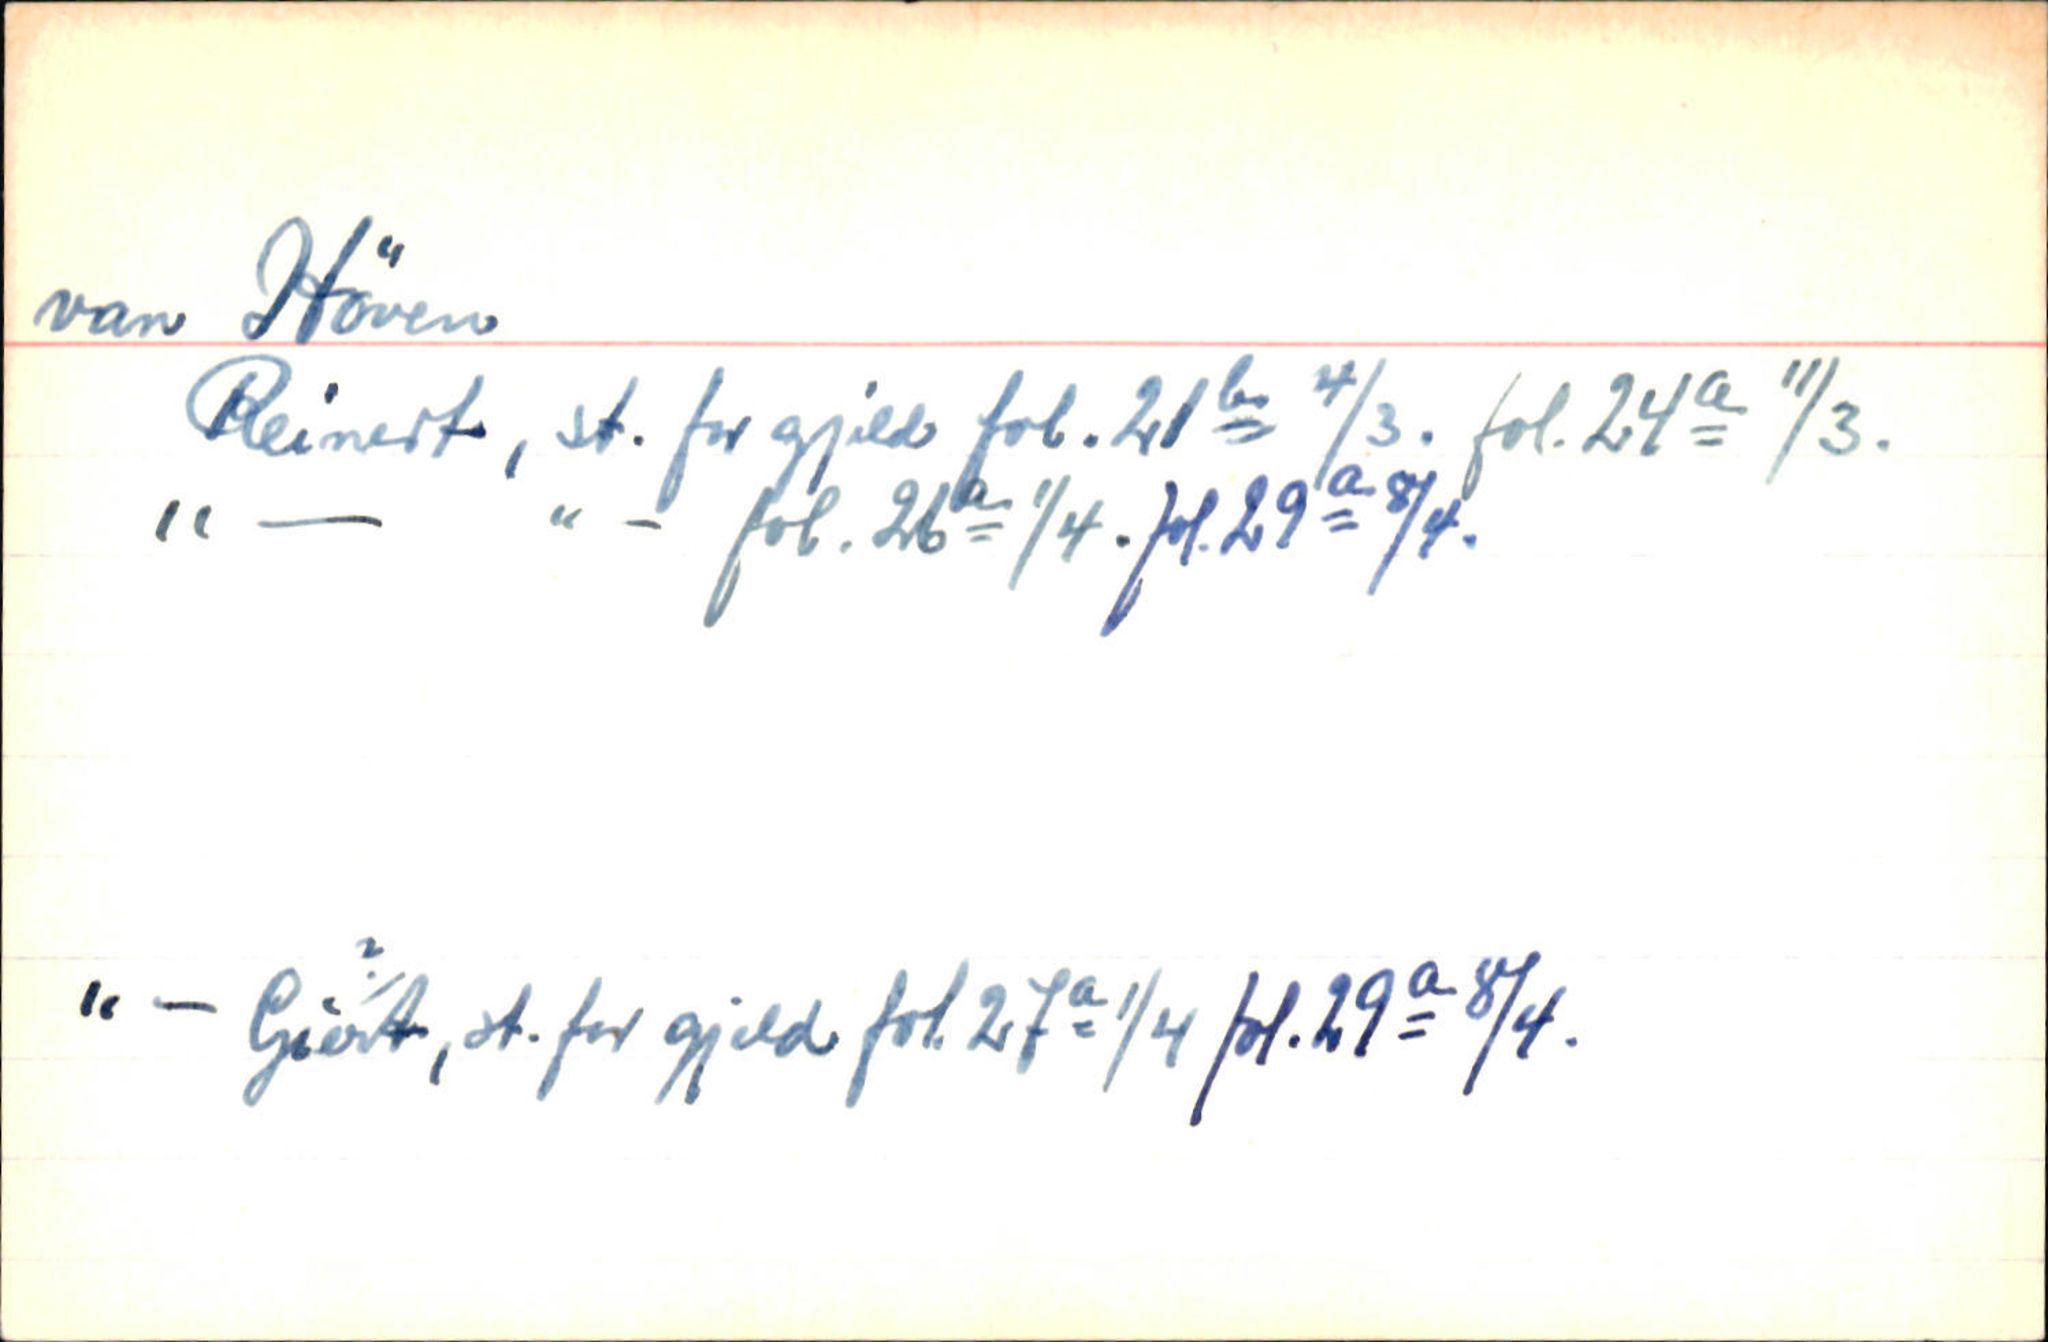 van Höven
Reinert, st. for gjeld fol. 21b 4/3. fol. 24a 11/3.
" — " - fol. 26a 1/4. fol. 29a 8/4.
" — Giert, st. for gjeld fol. 27a 1/4 fol. 29a 8/4.